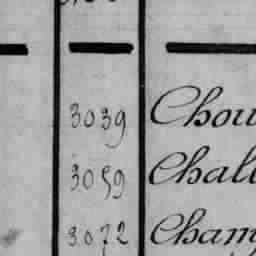 3039 Chou
3059 Chall
3072 Cham